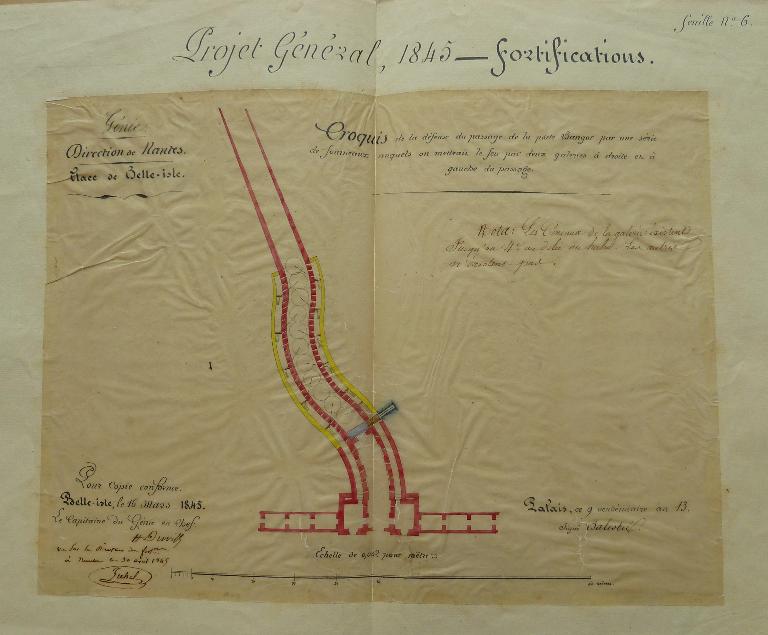 feuille N° 6.
Projet Général, 1845 — Fortifications.
Génie
Direction de Nantes.
Place de Belle-isle.
Croquis de la défense du passage de la porte Bangor par une série
de fourneaux auxquels on mettrait le feu par deux galeries à droite et à
gauche du passage.
Nota: Les Créneaux de la galerie existent
Jusqu'au 4e au delà du
n'existent pas.
Pour Copie conforme.
Belle-isle, le 16 Mars 1845.
Le Capitaine du Génie en Chef
Vu par le Directeur des
à Nantes le 30 août 1845
Palais, ce 9 vendémiaire an 13.
Signé
Echelle de 0,002 pour mètre